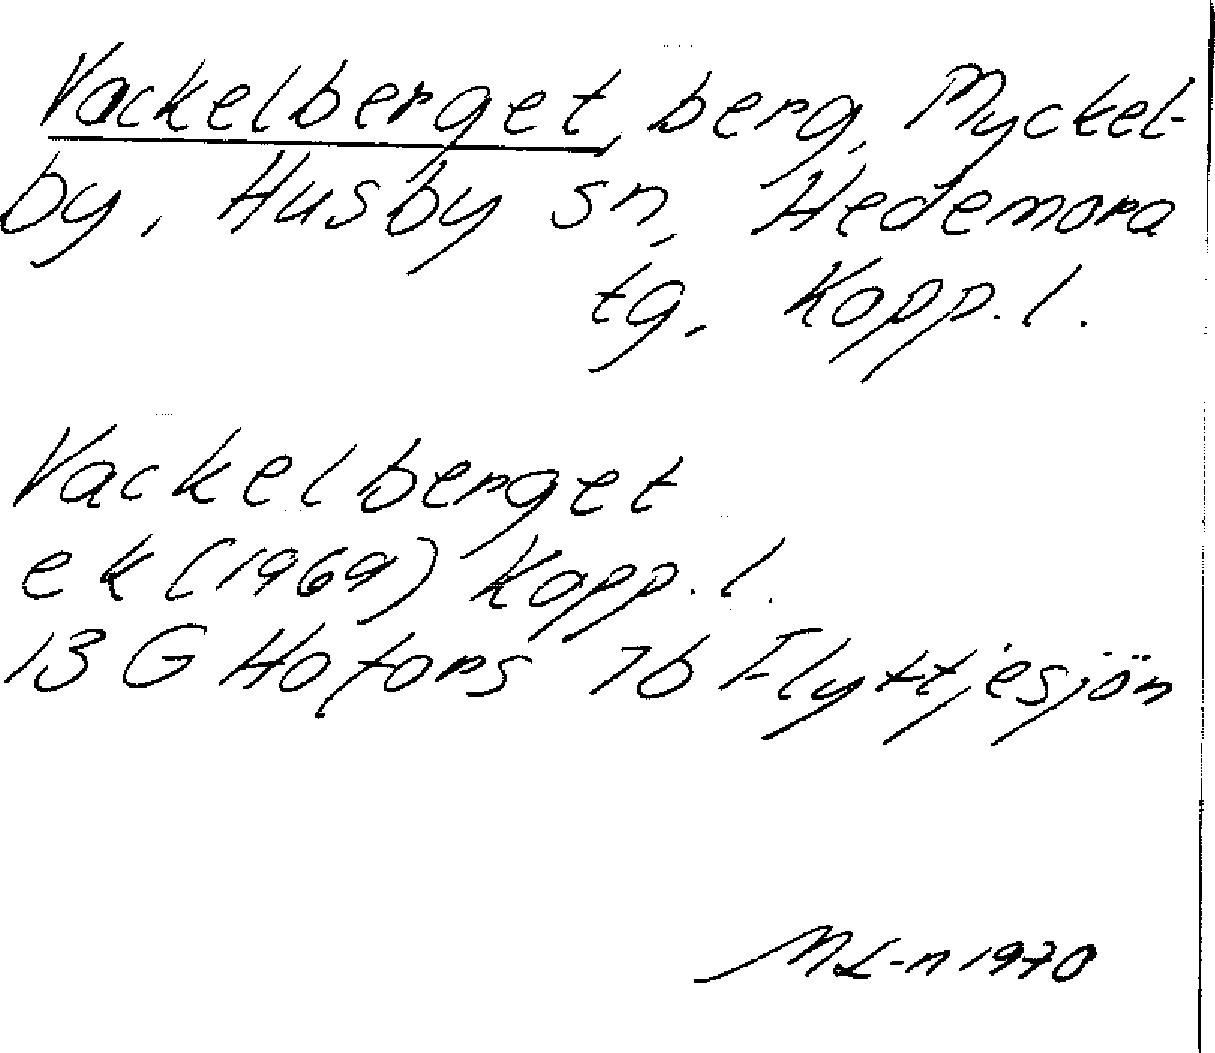 Vackelberget, berg, Myckel-
by, Husby sn, Hedemora
tg, Kopp. l.
Vackelberget
ek (1969) Kopp. l.
13 G Hofors 7b Flyttjesjön
ML-n 1970